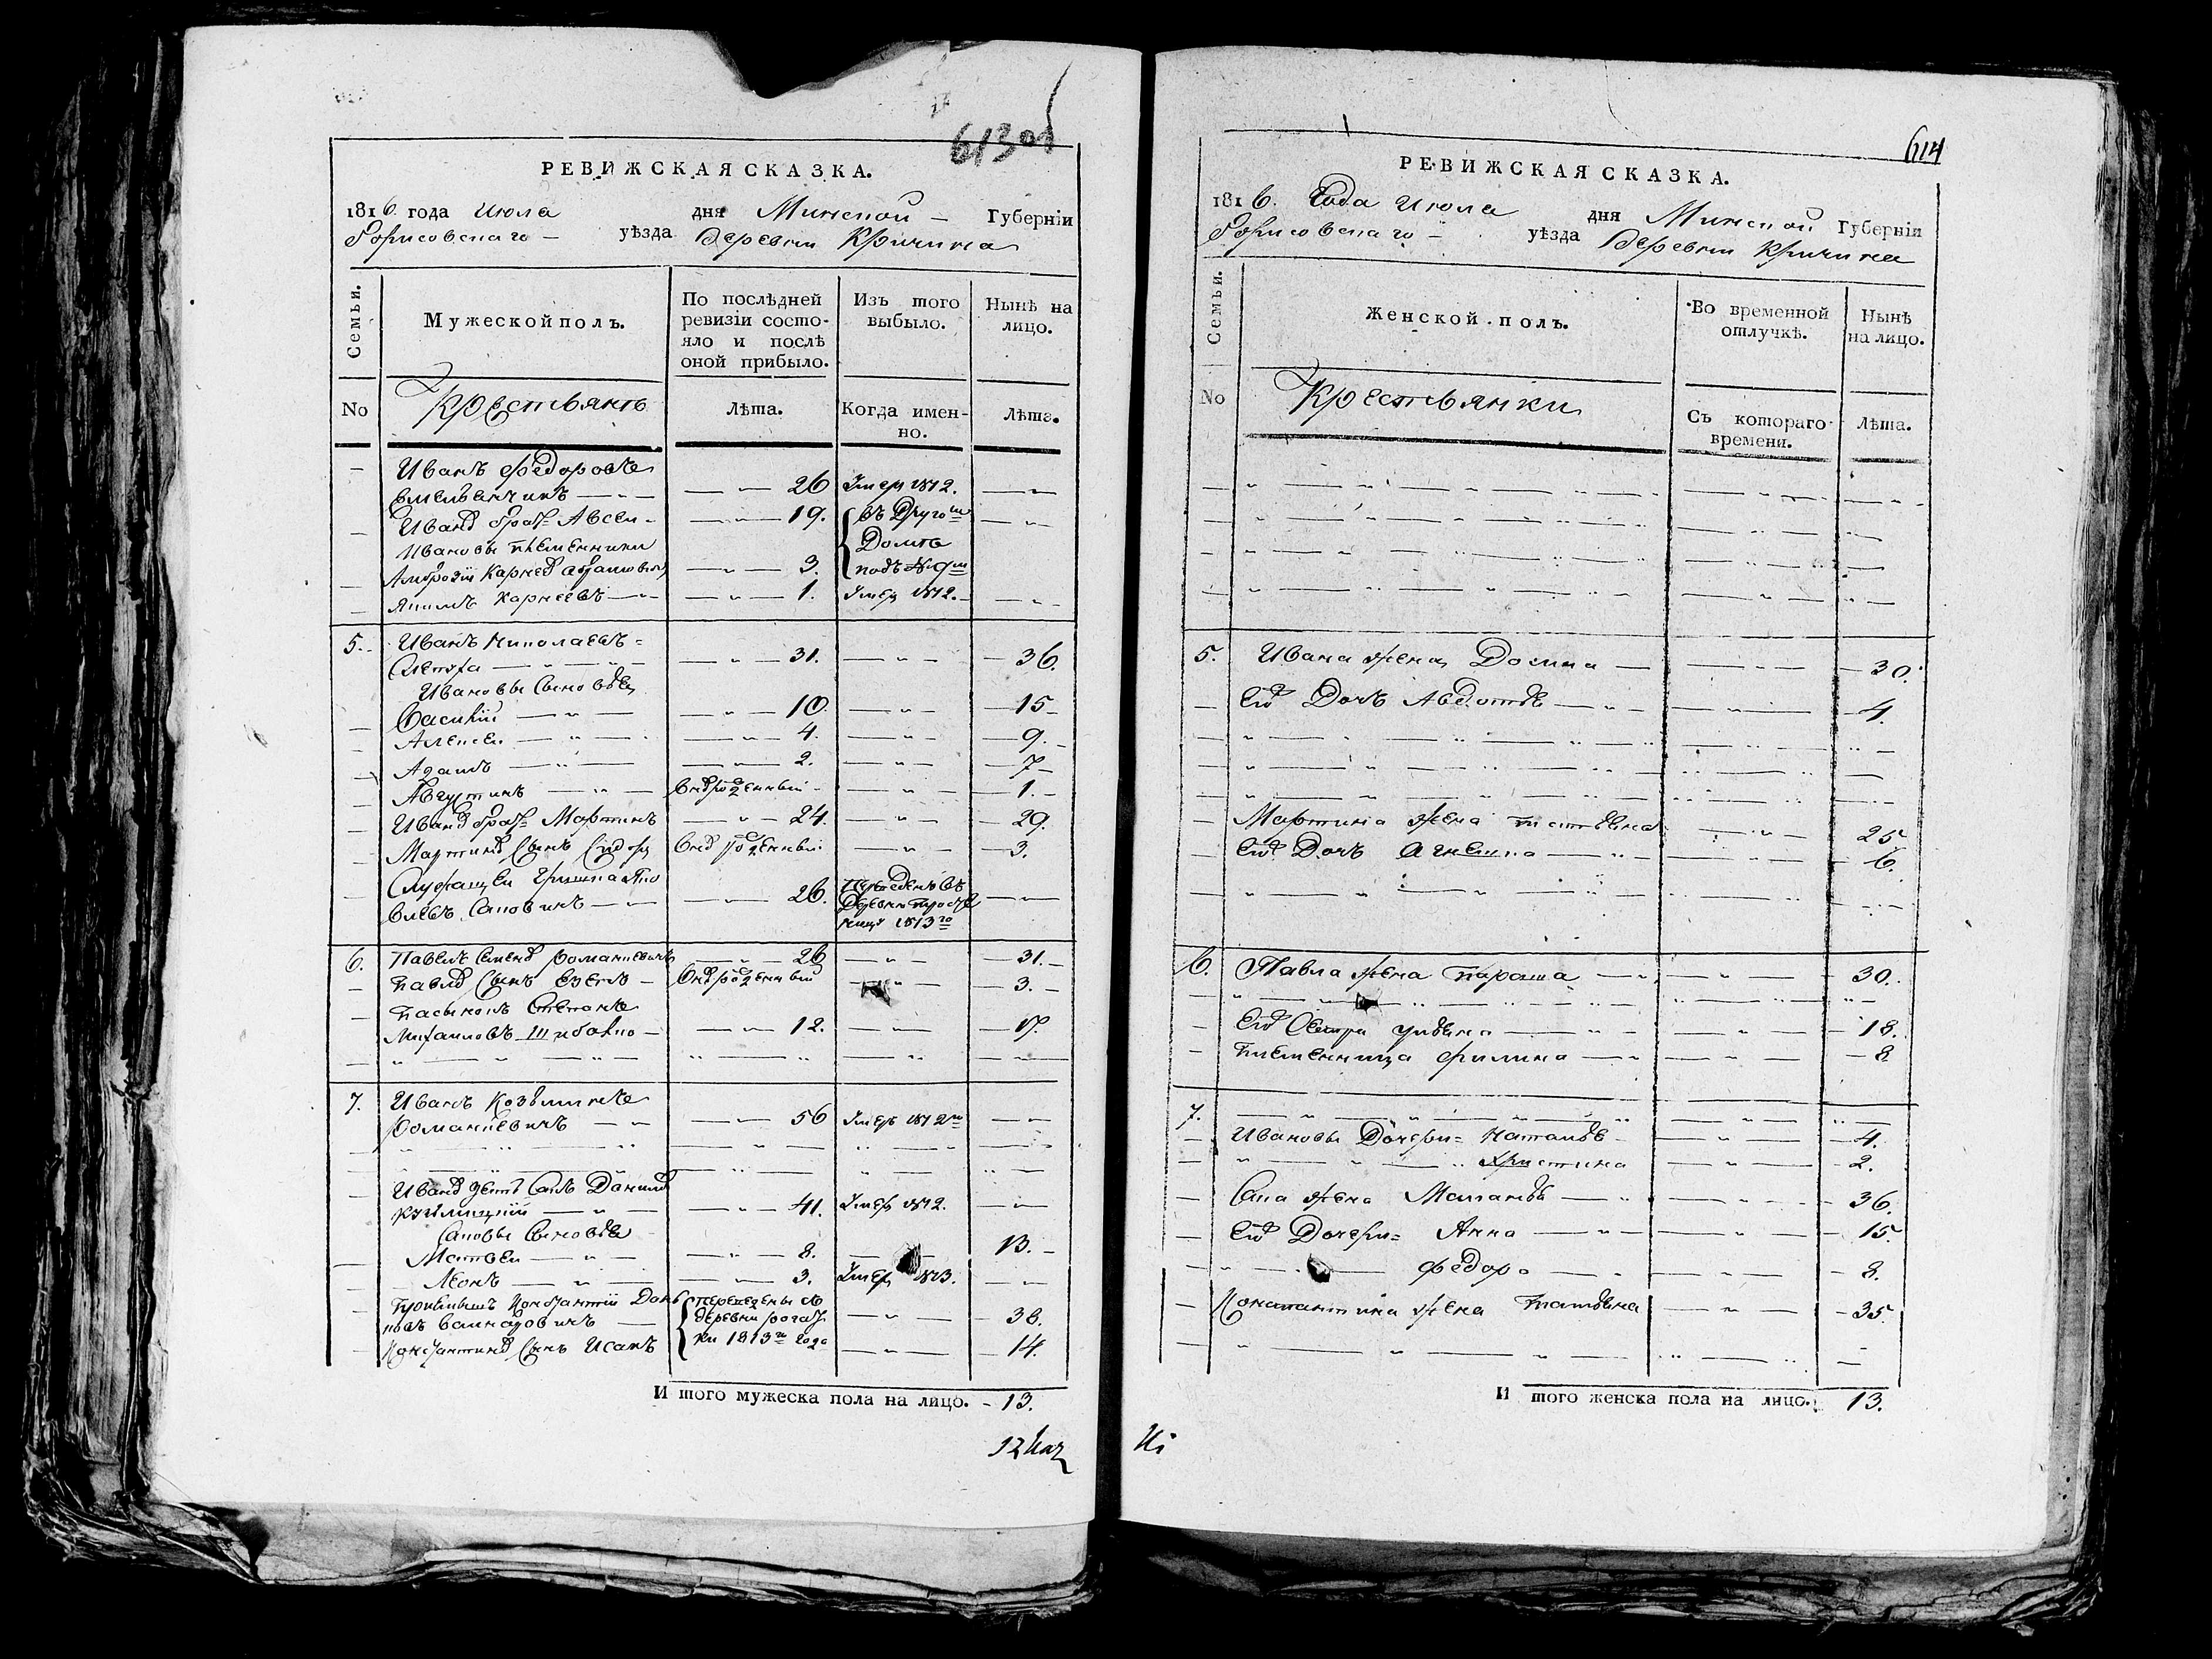 613 об
РЕВИЖСКАЯ СКАЗКА.
1816. года Июля дня Минской — Губерніи
Борисовскаго — уѣзда Деревни Кричина
Семьи.
Мужеской полъ.
По послѣдней ревизіи состояло и послѣ оной прибыло.
Изъ того выбыло.
Нынѣ на лицо.
No
Крестьянъ
Лѣта.
Когда именно.
Лѣта.
Иванъ Федоровъ
Емельянчикъ — 26 Умер 1812.
Ивана брат Авсей — 19. въ Другом
Ивановы племенники Домѣ
Амброзій Карнеев — 3. подъ № 9м
Якимъ Карнеевъ — 1. Умер 1812.
5. Иванъ Николаевъ
— 31. — 36.
Ивановы Сыновья
Василій — 10 — 15
Алексей — 4. — 9.
Адамъ — 2. — 7
Августинъ — 1.
Ивана брат Мартинъ — 24. — 29.
Мартина Сынъ Сидор — 3.
— 26. Переведенъ въ
Деревню
1813 го
6. Павелъ Семенов Романкевичъ — 26 — 31.
Павла Сынъ — 3.
Пасынокъ Степанъ
Михаиловъ Шибалко — 12. — 17.
7. Иванъ Козьминъ
Романкевичъ — 56 Умеръ 1812 го
Ивана зять Сапъ Данилов
— 41. Умер 1812.
Саповы Сыновья
Матвей — 8. — 13.
Леонъ — 3. Умер 1813.
Константій переведены съ
деревни — 38.
Константина Сынъ Исакъ 1813 го года — 14.
И того мужеска пола на лицо. — 13.
614
РЕВИЖСКАЯ СКАЗКА.
1816. Года Июля дня Минской Губерніи
Борисовскаго — уѣзда Деревни Кричина
Семьи.
Женской полъ.
Во временной отлучкѣ.
Нынѣ на лицо.
No
Крестьянки
Съ котораго времени.
Лѣта.
5. Ивана жена Досина — 30.
Его Дочь Авдотья — 4.
Мартина жена Татьяна — 25
Его Дочь Агнешка — 6.
6. Павла жена Параша — 30.
Его Сестра Ульяна — 18.
Племенница Филина — 8
7.
Ивановы Дочери = Наталья — 4.
Христина — 2.
Сапа жена Маланья — 36.
Его Дочери = Анна — 15.
Федора — 8.
Константина жена Татьяна — 35.
И того женска пола на лицо. 13.